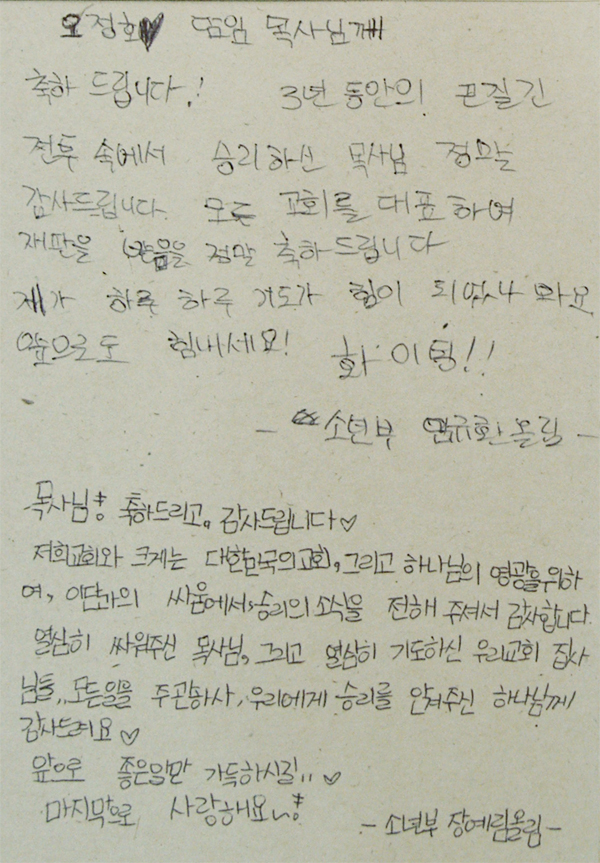 오정호♥ 담임 목사님께
축하 드립니다! 3년 동안의 끈질긴
전투 속에서 승리하신 목사님 정말
감사드립니다. 모든 교회를 대표하여
재판을 정말 축하드립니다
제가 하루 하루 기도가 힘이 되었나 봐요
앞으로도 힘내세요! 화이팅!!
- 소년부 올림 -
목사님! 축하드리고, 감사드립니다♡
저희교회와 크게는 대한민국의교회, 그리고 하나님의 영광을위하
여, 이단과의 싸움에서 승리의 소식을 전해 주셔서 감사합니다.
열심히 싸워주신 목사님, 그리고 열심히 기도하신 우리교회 집사
님들, 모든일을 주관하사, 우리에게 승리를 안겨주신 하나님께
감사드려요♡
앞으로 좋은일만 가득하시길..♡
마지막으로 사랑해요~!
- 소년부 장예림올림 -